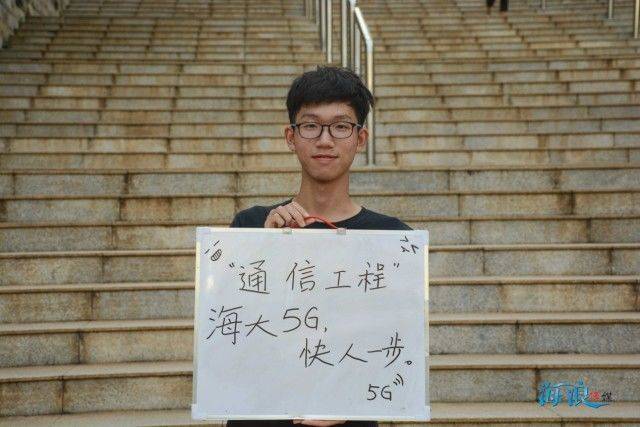 “通信工程”
海大5G,
快人一步。
5G
海浪传媒